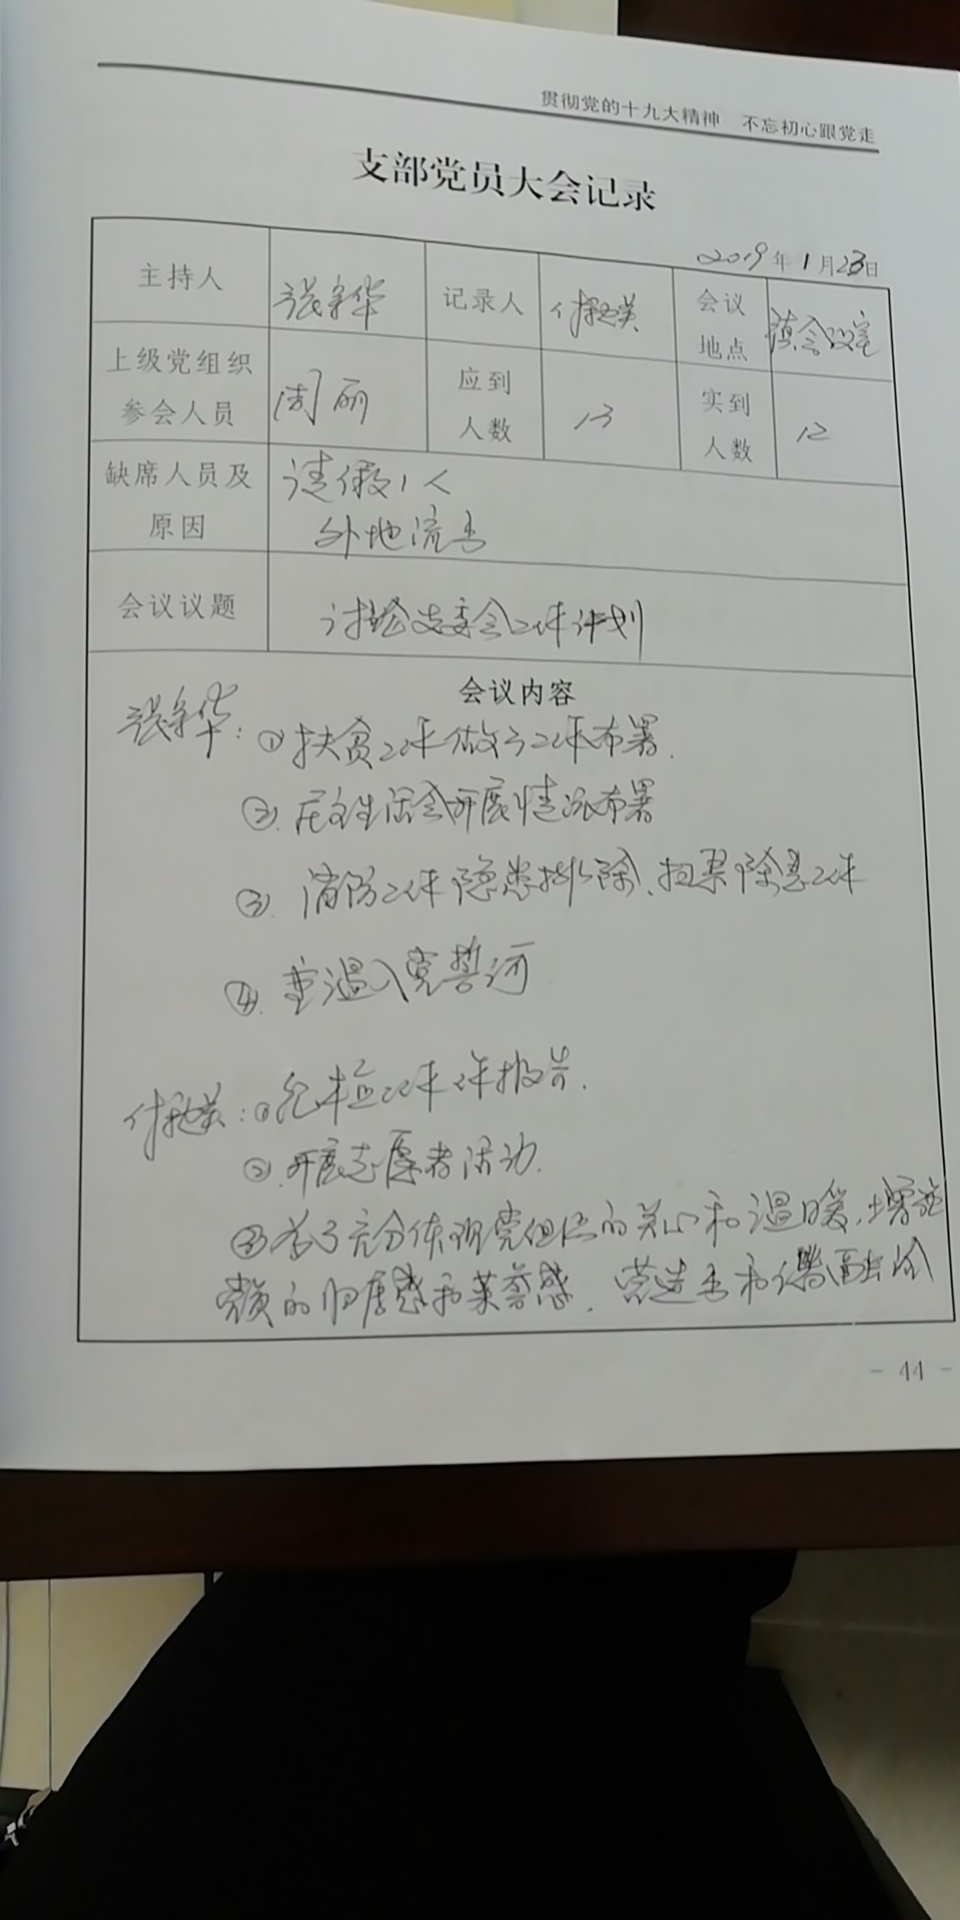 贯彻党的十九大精神 不忘初心跟党走
支部党员大会记录
2019年1月23日
主持人 张 华 记录人 付 英 会议地点 镇会议室
上级党组织参会人员 周丽 应到人数 13 实到人数 12
缺席人员及原因 请假1人
外地流
会议议题 讨论支委会工作计划
会议内容
张 华:①扶贫工作做了工作布署.
② 生活会开展情况布署
③.消防工作隐患排除、扫黑除恶工作
④.重温入党誓词
付 英:① 工作 报告.
②.开展志愿者活动.
③为了充分体现党组织的关心和温暖,增强
党员的归属感和荣誉感,营造 和 融洽
- 44 -